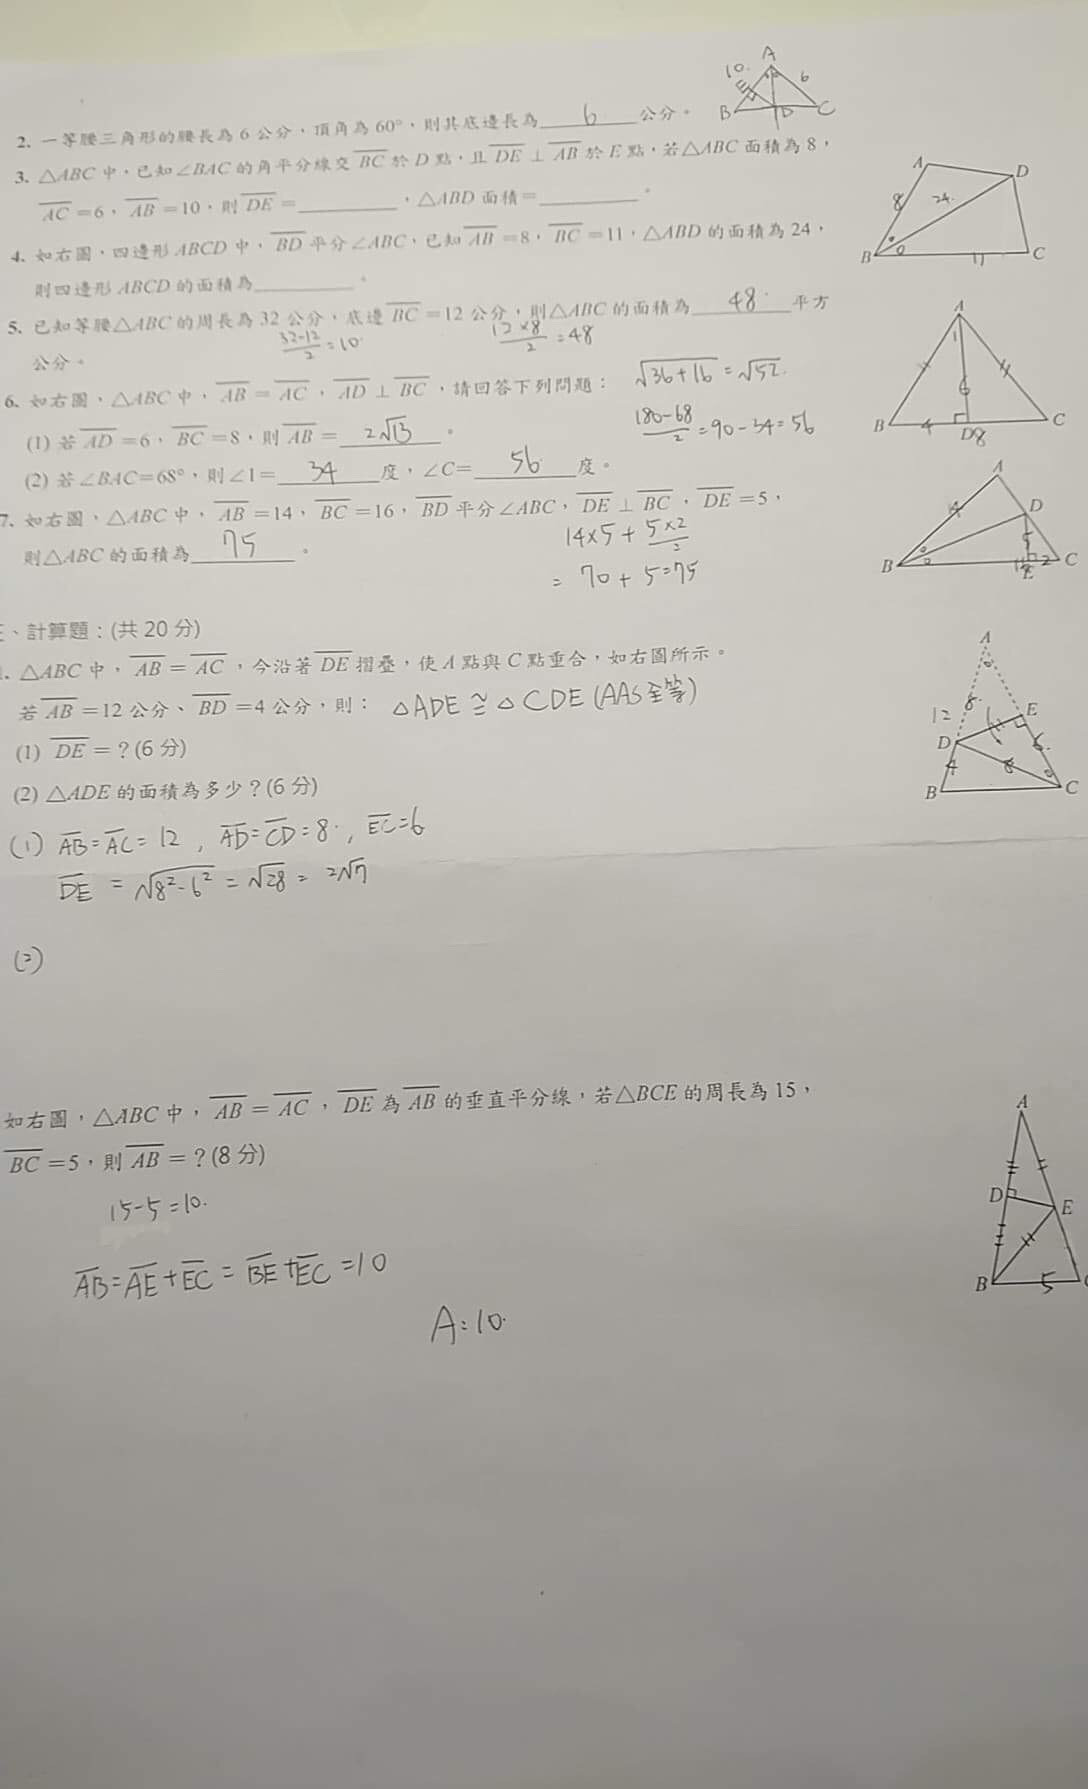 10. A 6 B D C E
2. 一等腰三角形的腰長為 6 公分，頂角為 60°，則其底邊長為 6 公分。
3. △ABC 中，已知∠BAC 的角平分線交 BC 於 D 點，且 DE ⊥ AB 於 E 點，若△ABC 面積為 8，
AC =6，AB =10，則 DE =＿＿＿＿，△ABD 面積=＿＿＿＿。
A D 8 24. B C 11
4. 如右圖，四邊形 ABCD 中，BD 平分∠ABC，已知 AB =8，BC =11，△ABD 的面積為 24，
則四邊形 ABCD 的面積為＿＿＿＿。
5. 已知等腰△ABC 的周長為 32 公分，底邊 BC =12 公分，則△ABC 的面積為 48 平方
公分。
32-12/2 =10
12×8/2 =48
6. 如右圖，△ABC 中，AB = AC，AD ⊥ BC，請回答下列問題：
√36+16 = √52.
(1) 若 AD =6，BC =8，則 AB = 2√13。
180-68/2 =90-34=56
(2) 若∠BAC=68°，則∠1= 34 度，∠C= 56 度。
A 1 6 B 4 D 8 C
7. 如右圖，△ABC 中，AB =14，BC =16，BD 平分∠ABC，DE ⊥ BC，DE =5，
則△ABC 的面積為 75。
14×5 + 5×2/2
= 70 + 5=75
A D 5 B E 2 C
、計算題：(共 20 分)
. △ABC 中，AB = AC，今沿著 DE 摺疊，使 A 點與 C 點重合，如右圖所示。
若 AB =12 公分、BD =4 公分，則：
△ADE ≅ △CDE (AAS全等)
(1) DE = ? (6 分)
(2) △ADE 的面積為多少？(6 分)
A 8. 12 E D 6. 4 8 B C
(1) AB=AC= 12 , AD=CD=8. , EC=6
DE = √8²-6² = √28 = 2√7
(2)
如右圖，△ABC 中，AB = AC，DE 為 AB 的垂直平分線，若△BCE 的周長為 15，
BC =5，則 AB = ? (8 分)
A D E B 5
15-5=10.
AB=AE+EC = BE+EC =10
A:10.